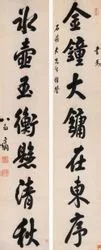 金鐘大鏞在東序
冰壺玉衡懸清秋